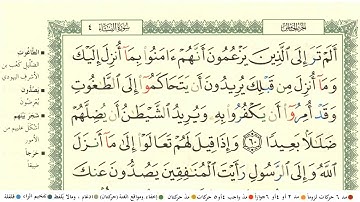 الجزء الخامس
سورة النساء
٤
أَلَمْ تَرَ إِلَى ٱلَّذِينَ يَزْعُمُونَ أَنَّهُمْ ءَامَنُوا۟ بِمَآ أُنزِلَ إِلَيْكَ
وَمَآ أُنزِلَ مِن قَبْلِكَ يُرِيدُونَ أَن يَتَحَاكَمُوٓا۟ إِلَى ٱلطَّٰغُوتِ
وَقَدْ أُمِرُوٓا۟ أَن يَكْفُرُوا۟ بِهِۦ وَيُرِيدُ ٱلشَّيْطَٰنُ أَن يُضِلَّهُمْ
ضَلَٰلًۢا بَعِيدًا ٦٠ وَإِذَا قِيلَ لَهُمْ تَعَالَوْا۟ إِلَىٰ مَآ أَنزَلَ
ٱللَّهُ وَإِلَى ٱلرَّسُولِ رَأَيْتَ ٱلْمُنَٰفِقِينَ يَصُدُّونَ عَنكَ
الطَّاغُوتِ
الضِّلِّيل كعْب بن
الأشرف اليهودي
يَصُدُّونَ
يُعرضون
شَجَرَ بَيْنَهُمْ
أشكل عليهم من
الأمور
حَرَجًا
ضيقا
مد ٦ حركات لزوما
مد ٢ او ٤ او ٦ جوازا
مد واجب ٤ او ٥ حركات
مد حركتان
إخفاء، ومواقع الغنة (حركتان)
إدغام، وما لا يلفظ
تفخيم الراء
قلقلة